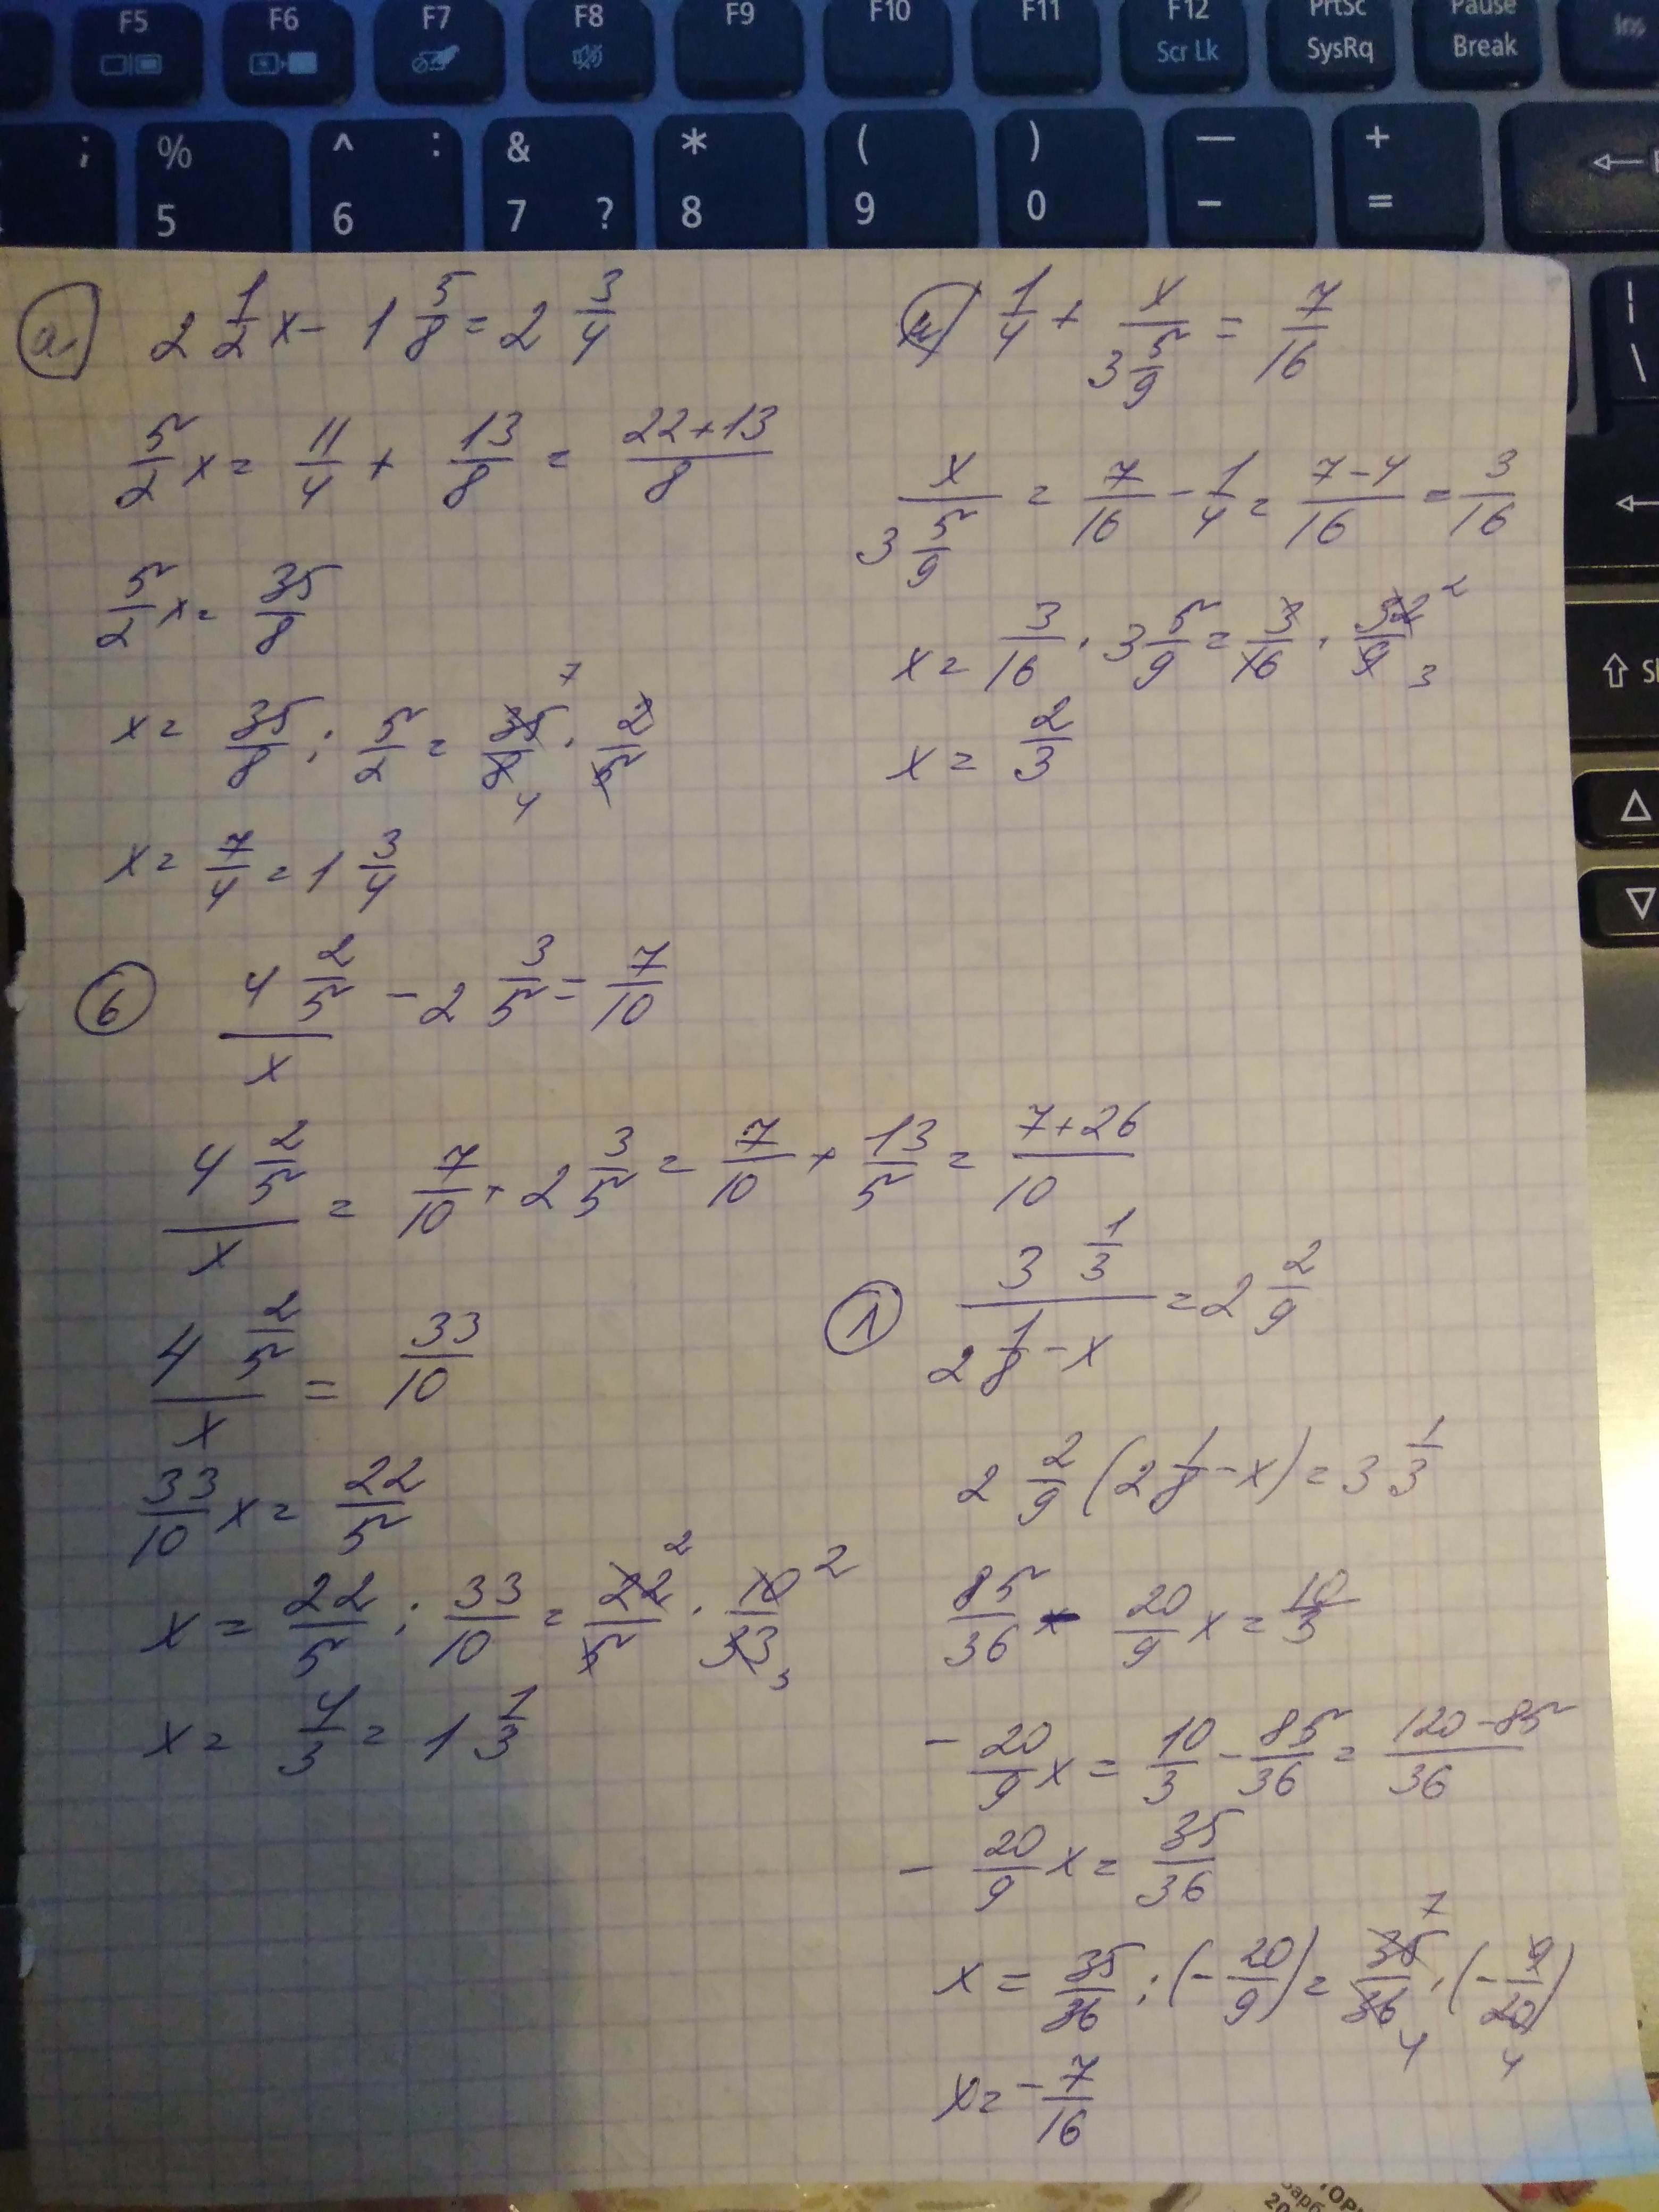 F5 F6 F7 F8 F9 F10 F11 F12 PrtSc Pause Ins
Scr Lk SysRq Break
; % ^ : & * ( ) — +
5 6 7 ? 8 9 0 - =
а) 2 1/2 x - 1 5/8 = 2 3/4
5/2 x = 11/4 + 13/8 = (22+13)/8
5/2 x = 35/8
x = 35/8 : 5/2 = 35/8 · 2/5
7
4
x = 7/4 = 1 3/4
б (4 2/5)/x - 2 3/5 = 7/10
(4 2/5)/x = 7/10 + 2 3/5 = 7/10 + 13/5 = (7+26)/10
(4 2/5)/x = 33/10
33/10 x = 22/5
x = 22/5 : 33/10 = 22/5 · 10/33
2 2
3
x = 4/3 = 1 1/3
1/4 + x/(3 5/9) = 7/16
x/(3 5/9) = 7/16 - 1/4 = (7-4)/16 = 3/16
x = 3/16 · 3 5/9 = 3/16 · 32/9
2
3
x = 2/3
(3 1/3)/(2 1/8 - x) = 2 2/9
2 2/9 (2 1/8 - x) = 3 1/3
85/36 - 20/9 x = 10/3
- 20/9 x = 10/3 - 85/36 = (120-85)/36
- 20/9 x = 35/36
x = 35/36 : (- 20/9) = 35/36 · (- 9/20)
7
4 4
x = - 7/16